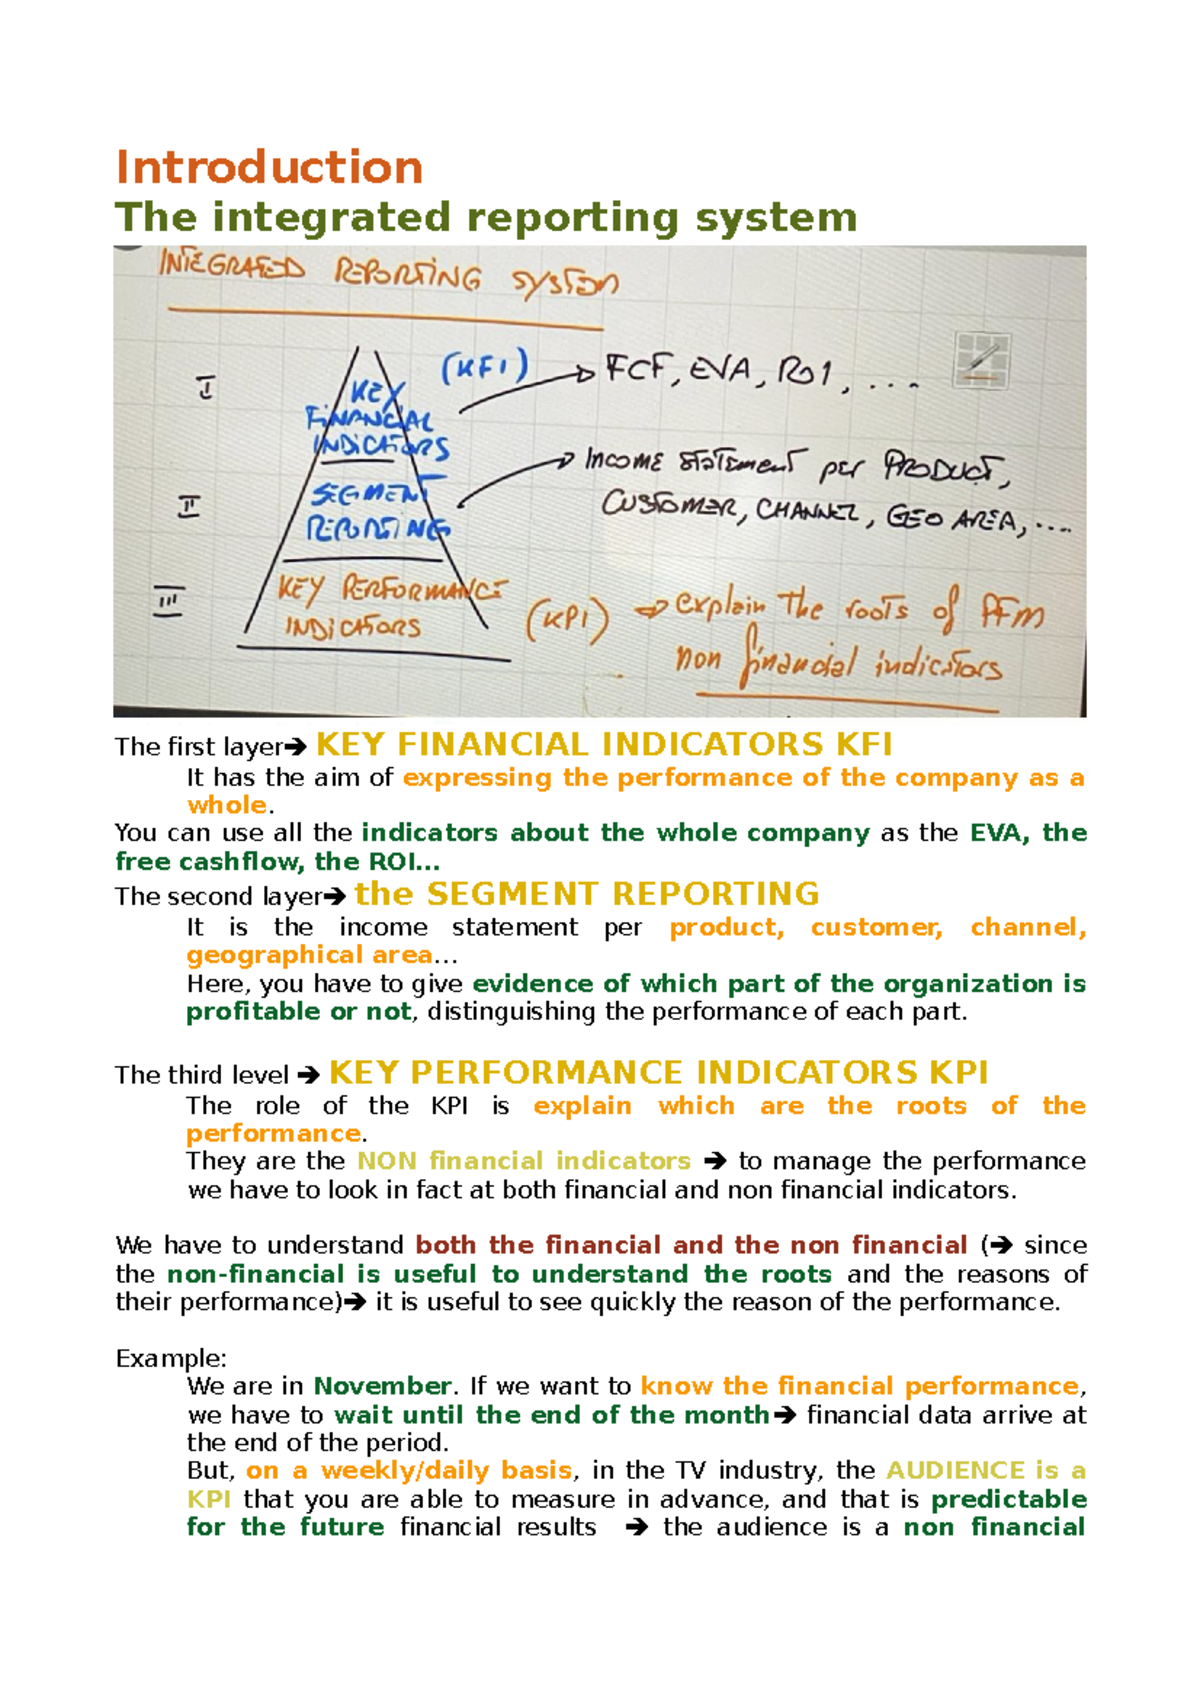 Introduction
The integrated reporting system
INTEGRATED REPORTING SYSTEM
I
KEY
FINANCIAL
INDICATORS
(KFI)
FCF, EVA, ROI, ...
II
SEGMENT
REPORTING
INCOME STATEMENT per PRODUCT,
CUSTOMER, CHANNEL, GEO AREA, ...
III
KEY PERFORMANCE
INDICATORS
(KPI) => explain the roots of
non financial indicators
The first layer➔ KEY FINANCIAL INDICATORS KFI
It has the aim of expressing the performance of the company as a
whole.
You can use all the indicators about the whole company as the EVA, the
free cashflow, the ROI…
The second layer➔ the SEGMENT REPORTING
It is the income statement per product, customer, channel,
geographical area…
Here, you have to give evidence of which part of the organization is
profitable or not, distinguishing the performance of each part.
The third level ➔ KEY PERFORMANCE INDICATORS KPI
The role of the KPI is explain which are the roots of the
performance.
They are the NON financial indicators ➔ to manage the performance
we have to look in fact at both financial and non financial indicators.
We have to understand both the financial and the non financial (➔ since
the non-financial is useful to understand the roots and the reasons of
their performance)➔ it is useful to see quickly the reason of the performance.
Example:
We are in November. If we want to know the financial performance,
we have to wait until the end of the month➔ financial data arrive at
the end of the period.
But, on a weekly/daily basis, in the TV industry, the AUDIENCE is a
KPI that you are able to measure in advance, and that is predictable
for the future financial results ➔ the audience is a non financial